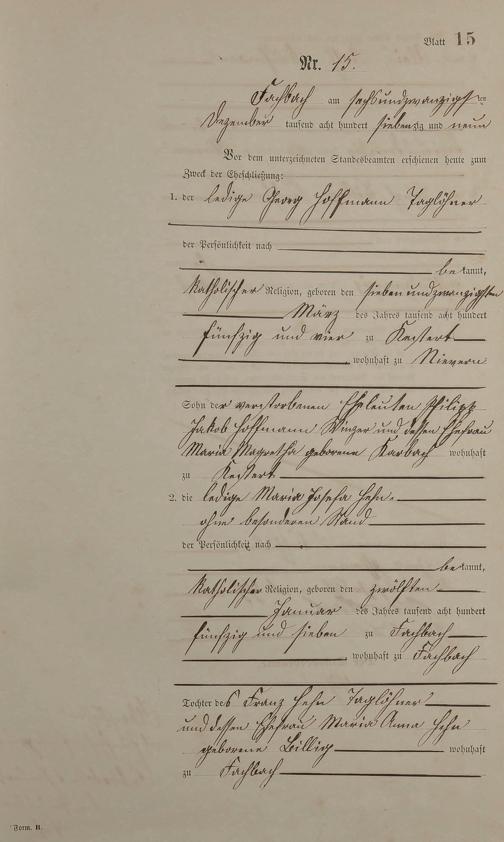 Blatt 15
Nr. 15.
Fachbach am sechsundzwanzigsten
Dezember tausend acht hundert siebenzig und neun
Vor dem unterzeichneten Standesbeamten erschienen heute zum
Zweck der Eheschließung:
1. der ledige Georg Hoffmann Taglöhner
der Persönlichkeit nach
bekannt,
katholischer Religion, geboren den siebenundzwanzigsten
März des Jahres tausend acht hundert
fünfzig und vier zu Kestert
, wohnhaft zu Nievern
Sohn der verstorbenen Eheleuten Philipp
Jakob Hoffmann Winzer und dessen Ehefrau
Maria Magretha geborene Karbach wohnhaft
zu Kestert
2. die ledige Maria Josefa Hehn
ohne besonderen Stand
der Persönlichkeit nach
bekannt,
katholischer Religion, geboren den zwölften
Januar des Jahres tausend acht hundert
fünfzig und sieben zu Fachbach
, wohnhaft zu Fachbach
Tochter des Franz Hehn Taglöhner
und dessen Ehefrau Maria Anna Hehn
geborene Billig wohnhaft
zu Fachbach
Form. B.